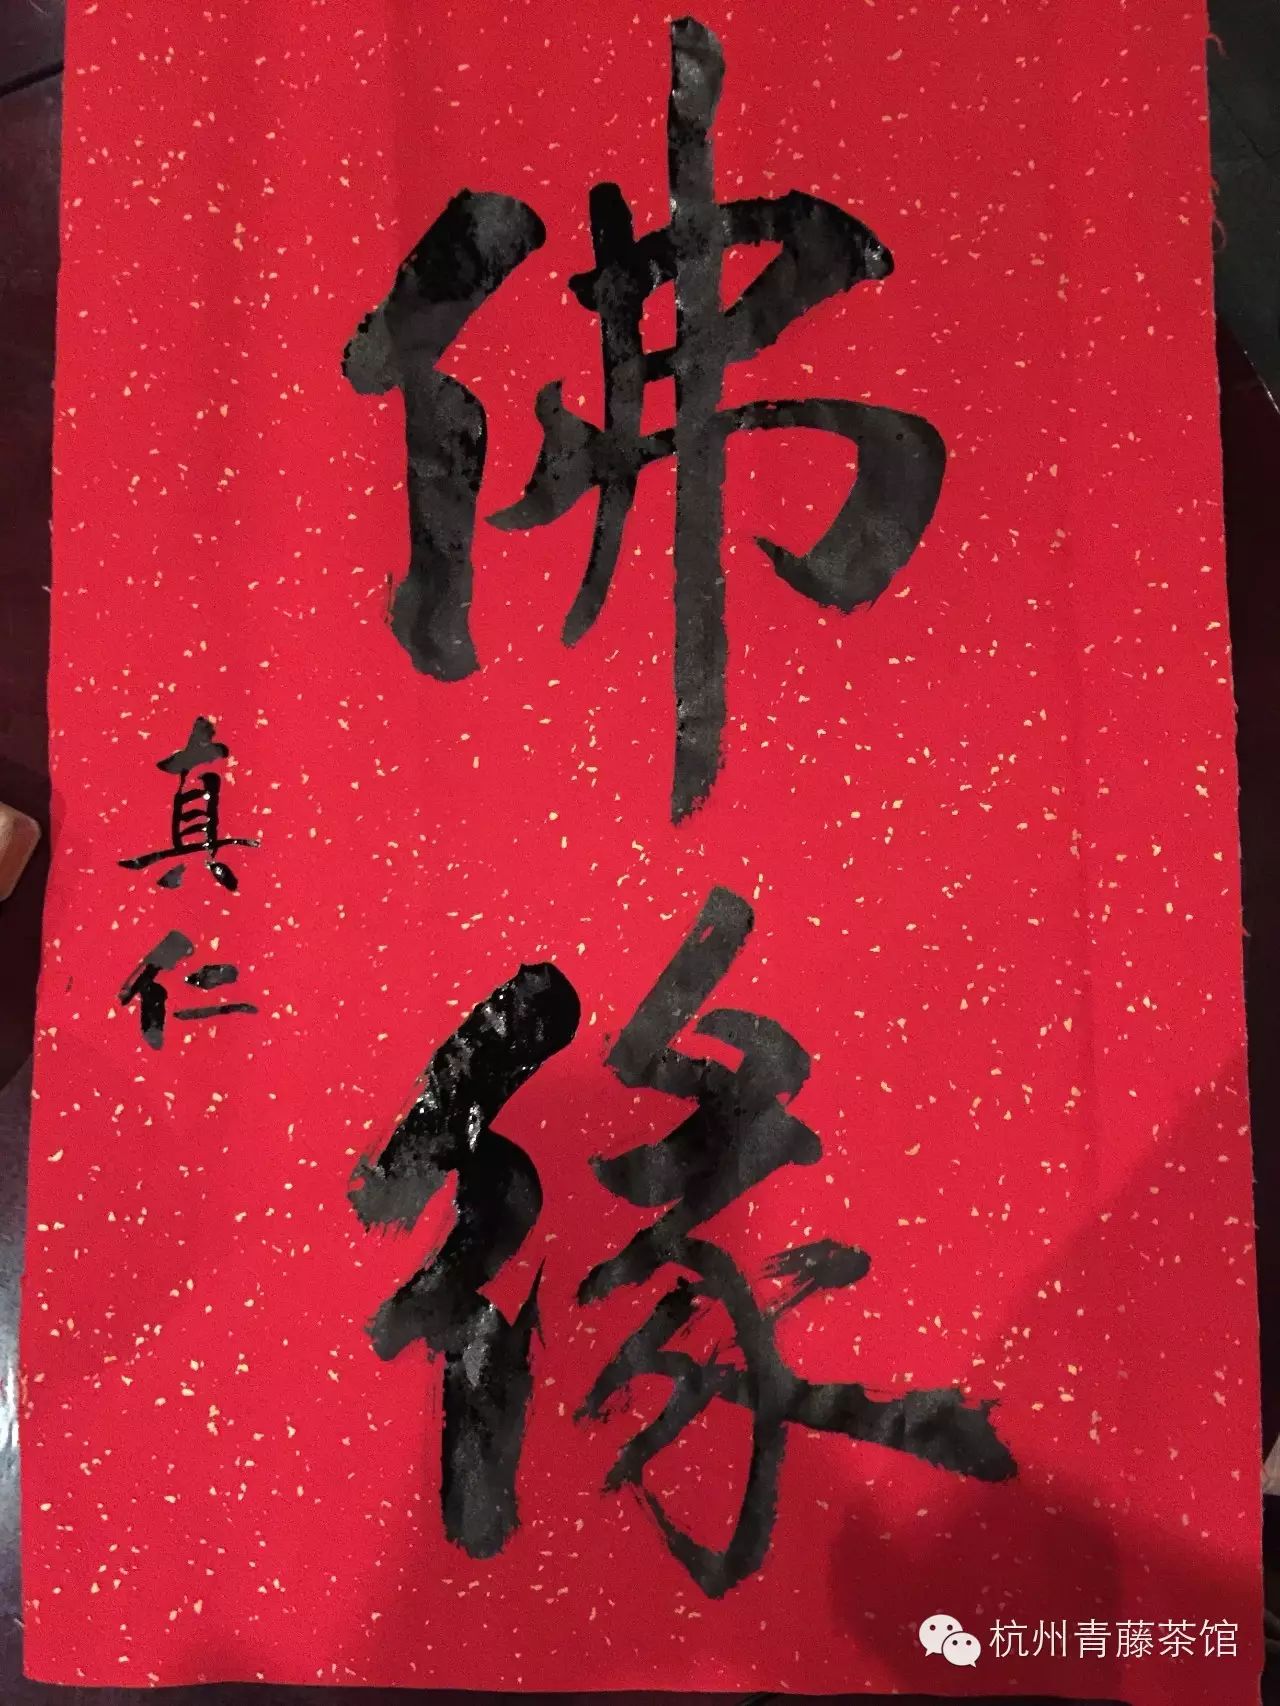 佛
缘
真
仁
杭州青藤茶馆